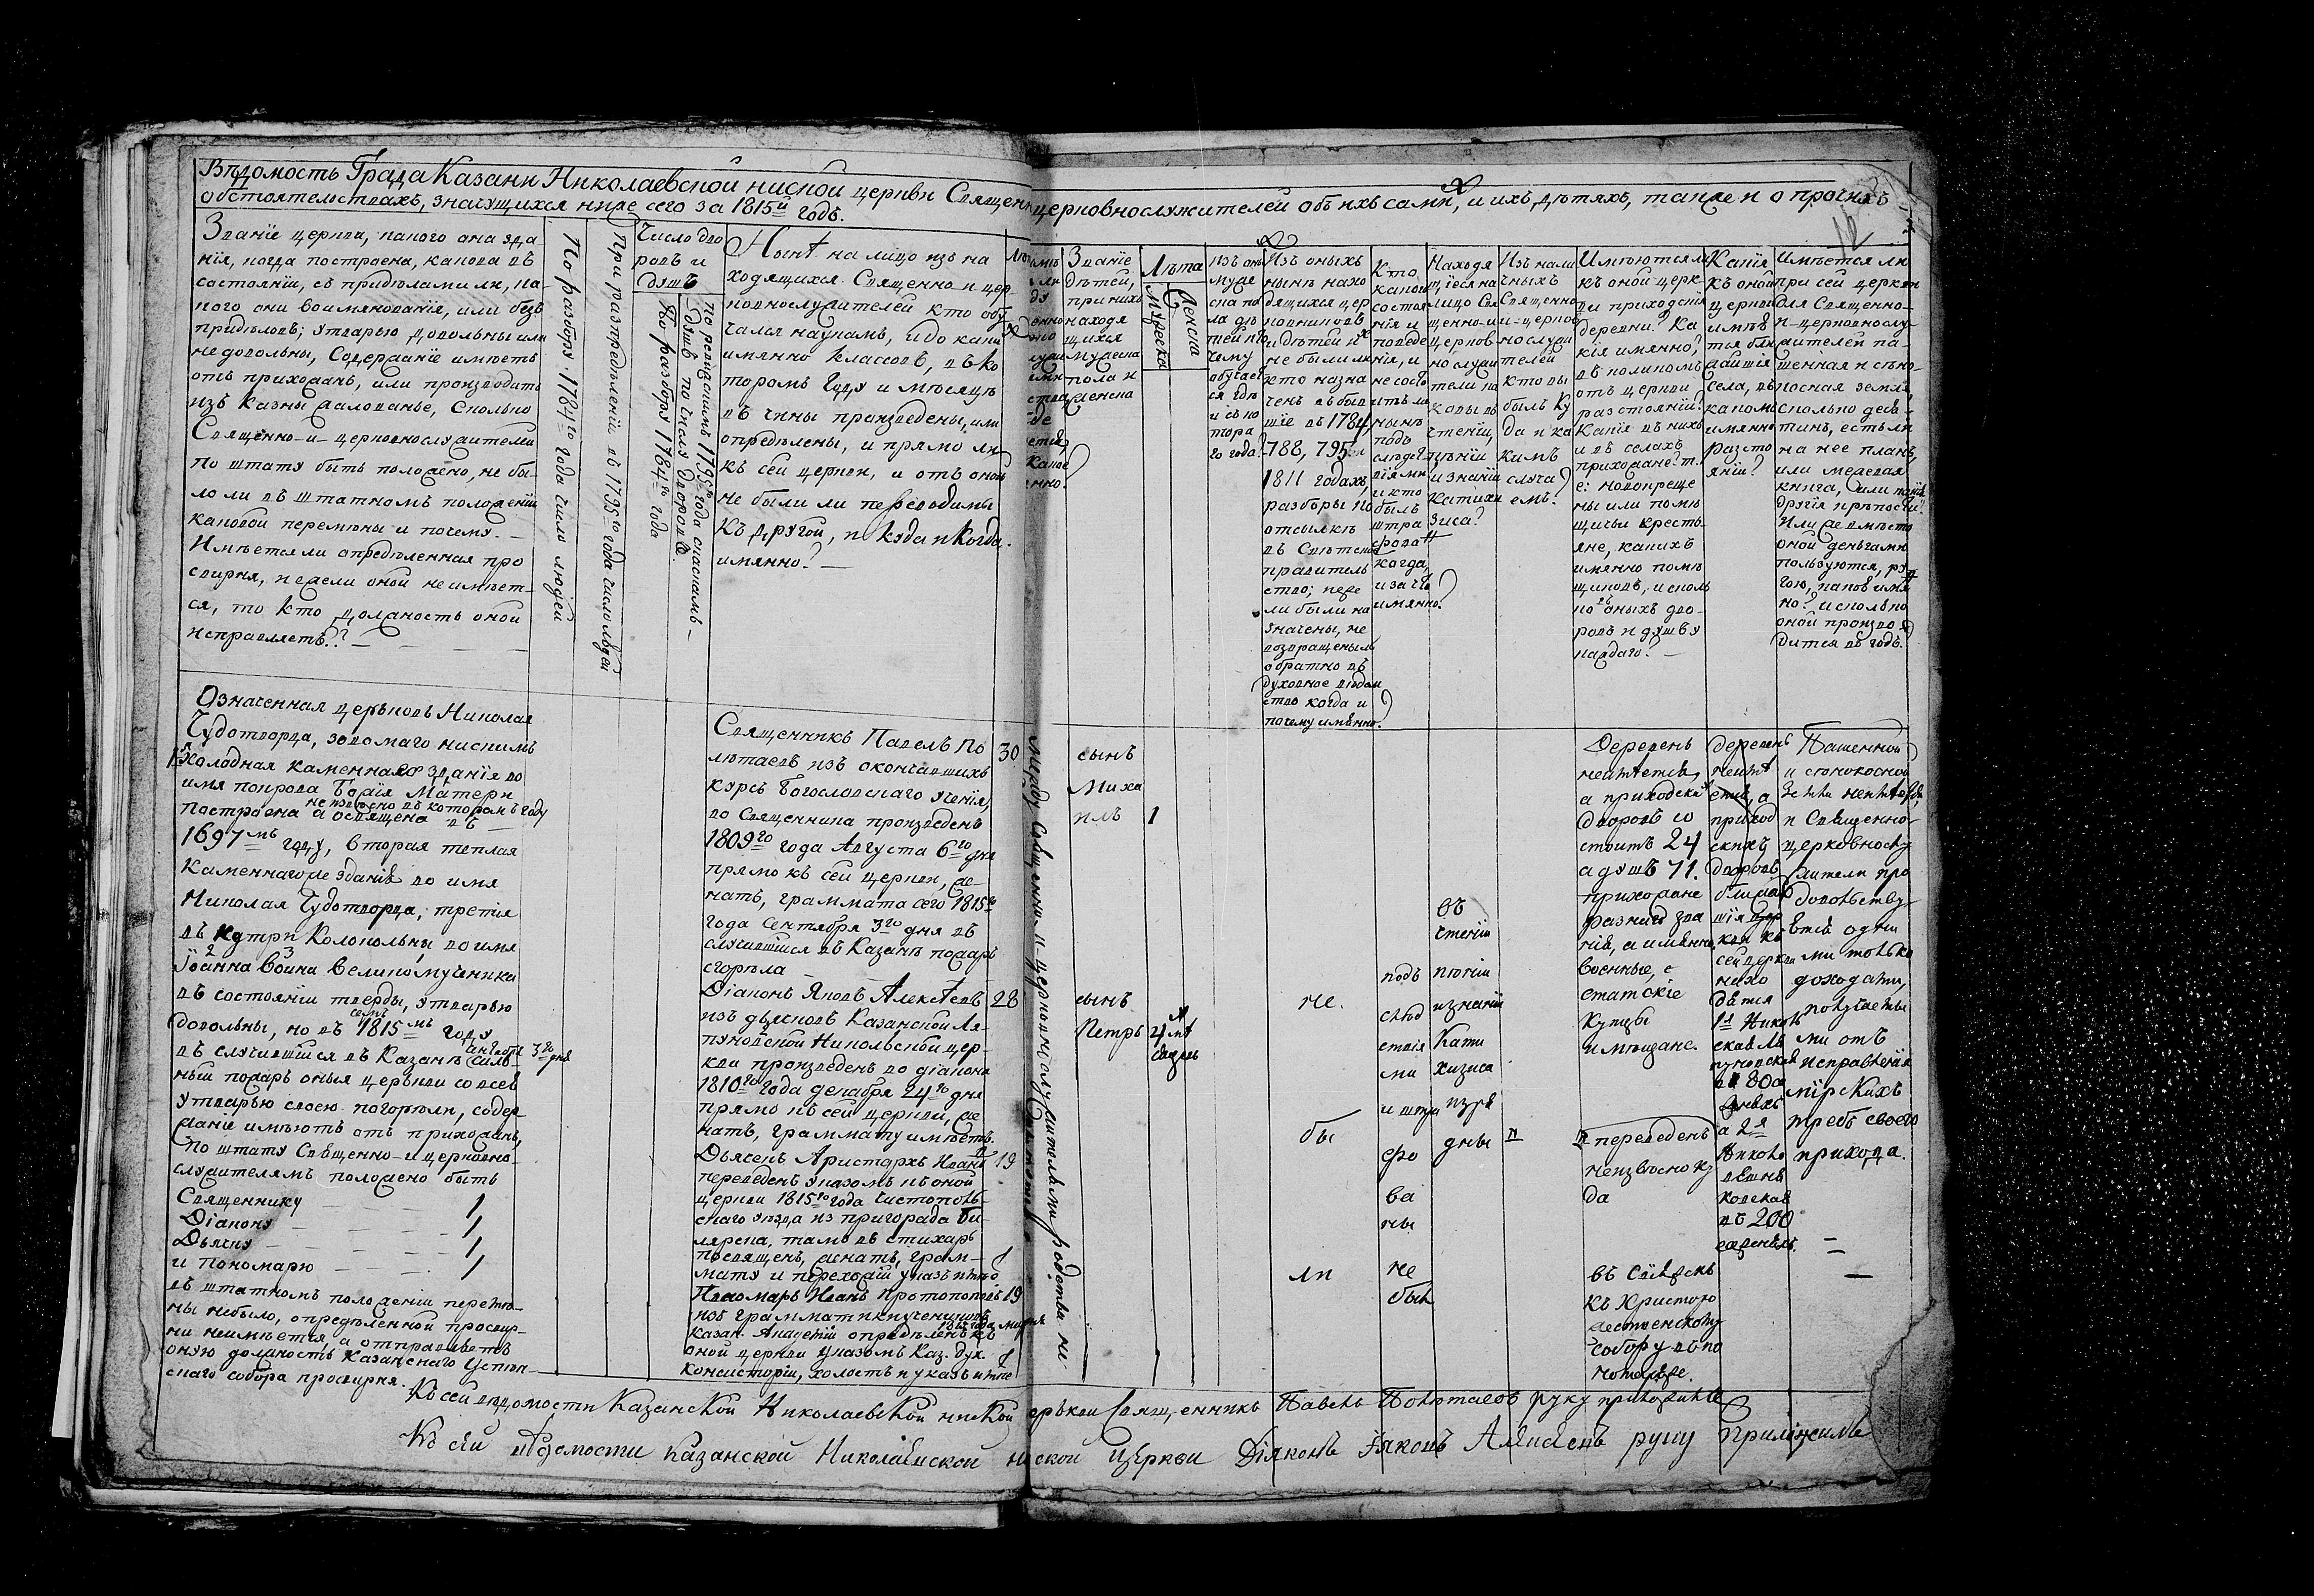 Вѣдомость Града Казани Николаевской ниской церкви Священно церковнослужителей объ нихъ самих, и ихъ дѣтяхъ, также и о прочихъ
обстоятельствахъ, значущихся ниже сего за 1815й годъ.
Званіе церкви, какого она зда
нія, когда построена, какова въ
состояніи, съ придѣлами ли, ка-
кого они воименованіе, или безъ
придѣловъ; утварью довольны или
недовольны, Содержаніе имѣетъ
отъ прихожанъ, или производитъ
изъ казны жалованье, Сколько
Священно-и-церковнослужителей
по штату быть положено, не бы-
ло ли въ штатномъ положеніи
каковой перемѣны и почему. —
Имѣется ли опредѣленная про
свирня, и ежели оной не имѣет-
ся, то кто должность оной
исправляетъ? —
По разбору 1784го года число людей
При распредѣленіи въ 1795го года число людей
Число дво
ровъ и
душъ
По разбору 1784го года
По ревизскимъ 1795го года сказкамъ —
душъ по числу дворовъ
Нынѣ на лицо изъ на
ходящихся Священно и цер
ковнослужителей кто обу-
чался наукамъ, и до каких
имянно Классовъ, въ ко
торомъ году и мѣсяцѣ
въ чины произведены, или
опредѣлены, и прямо ли
къ сей церкви, и отъ оной
не были ли переводимы
къ другой, и куда и когда
имянно? —
Званіе
дѣтей,
при нихъ
находя
щихся
мужеска
пола и
женска
Лѣта
Мужеска
Женска
Изъ оныхъ
муже
ска по
ла дѣ
тей кто
чему
обучает
ся гдѣ
и съ ко
тора
го года?
Изъ оныхъ
нынѣ нахо
дящихся цер
ковниковъ
и дѣтей ихъ
не были ли
кто назна
ченъ въ быв
шіе въ 1784,
788, 795 и
1811 годахъ,
разборы къ
отсылкѣ
въ Свѣтское
правитель
ство; иже
ли были на
значены, не
возвращены ли
обратно въ
духовное вѣдом
ство когда и
почему имянно?
Кто
каково
состоя
нія и
поведе
нія, и
не состо
итъ ли
нынѣ
подъ
слѣдст
віями
и кто
былъ
штра
фованъ
когда,
и за что
имянно?
Находя
щіеся на
лицо Свя
щенно-и
церков
нослужи
тели ка
ковы въ
чтеніи,
пѣніи
и знаніи
Катихи
зиса?
Изъ нали
чныхъ
Священно
и-церков
нослужи
телей
кто гдѣ
былъ Ку
да и ка
кимъ
случа
емъ?
Имѣются ли
къ оной церк-
ви приходскія
деревни? Ка
кія имянно,
въ коликомъ
отъ церкви
разстояніи?
Какія въ нихъ
и въ селахъ
прихожане? т.
е: новокреще
ны или помѣ
щичьи кресть
яне, какихъ
имянно помѣ
щиковъ, и сколь
ко въ оныхъ дво-
ровъ и душъ у
каждаго? —
Какія
къ оной
церкви
имѣю
тся бли
жайшія
села, въ
какомъ
имянно
разсто
яніи?
Имѣется ли
при сей церкви
для Священно-
и-церковнослу-
жителей па-
шенная и сѣно-
косная земля,
сколько деся-
тинъ, есть ли
на нее планъ,
или межевая
книга, или какія
другія крѣпости?
Или же вмѣсто
оной деньгами
пользуются, ру
гою, какою имян
но? и сколько
оной произво
дится въ годъ.
Означенная церковь Николая
Чудотворца, зовомаго нискимъ
1я Холодная каменнаго зданія во
имя покрова Божія Матери
построена неизвѣсно въ которомъ году
а освящена въ
1697мъ году, вторая теплая
каменнаго же зданія во имя
Николая Чудотворца, третія
въ нутри Колокольни, во имя
Іоанна Воина Великомученика
въ состояніи тверды, утварью
довольны, но въ семъ 1815мъ году
въ случившійся въ Казанѣ сентября 3го дня силь-
ный пожаръ оныя церкви со всей
утварью своею погорѣли, содер
жаніе имѣютъ отъ прихожанъ,
По штату Священно-и церковно-
служителямъ положено быть
Священнику — 1
Діакону — 1
Дьячку — 1
и пономарю — 1
въ штатномъ положеніи перемѣ-
ны небыло, опредѣленной просвир-
ни неимѣется, а отправляетъ
оную должность Казанскаго Успен-
скаго собора просвирня.
Священникъ Павелъ По
лютаевъ изъ окончавшихъ
курсъ Богословскаго ученія,
во Священника произведенъ
1809го года Августа 6го дня
прямо къ сей церкви, же-
натъ, граммата сего 1815го
года Сентября 3го дня въ
случившійся въ Казанѣ пожаръ
сгорѣла —
30
Діаконъ Яковъ Алексѣевъ
изъ дьячковъ Казанской Ля-
пуновской Никольской цер-
кви произведенъ во діакона
1810го года декабря 24го дня
прямо къ сей церкви, же
натъ, граммату имѣетъ.
28
Дьячекъ Аристархъ Ивановъ
переведенъ указомъ къ оной
церкви 1815го года Чистополь-
скаго уѣзда изъ пригорада Би-
лярска, тамо въ стихарь
посвященъ, женатъ, грам-
мату и перехожій указъ имѣетъ
19
Пономарь Иванъ Протопоповъ
изъ грамматики учениковъ
Казан. Академіи опредѣленъ къ
оной церкви указомъ Каз. Дух.
Консисторіи, холостъ и указъ имѣетъ
19
Между Священно и церковнослужителями родства ни
сынъ
Миха
илъ 1
сынъ
Петръ
не.
бы
ли
подъ
слѣд
ствія
ми
и штра
фо
ва
ны
не
были
въ
чтеніи
пѣніи
и знаніи
Кати
хизиса
изря
дны
Деревень
неимѣется,
а приходскихъ
дворовъ со
стоитъ 24
а душъ 71.
прихожане
разнаго зва
нія, а имянно
военные,
статскіе
Купцы
и мѣщане.
переведенъ
неизвѣсно ку
да
въ Сві
къ Христоро
жественскому
собору въ по
номаре.
деревень
неимѣ
ется, а
приход
скихъ
дворовъ
ближай
шія цер
кви къ
сей церкви
нахо
дятся
1я Николь
ская Ля
пуновская
въ 80
саженяхъ
а 2я
Николо
въ 200
саженяхъ. —
Пашенной
и сѣнокосной
земли неимѣется,
и Священно-
церковнослу
жители про
довольству-
ются одни
ми только
доходами,
получаемы
ми отъ
исправленія
мірскихъ
требъ своего
прихода.
Къ сей вѣдомости Казанской Николаевской ниской церкви Священникъ Павелъ Полютаевъ руку приложилъ
Къ сей вѣдомости Казанской Николаевской ниской Церкви Діяконъ Іяковъ Алексѣевъ руку приложилъ